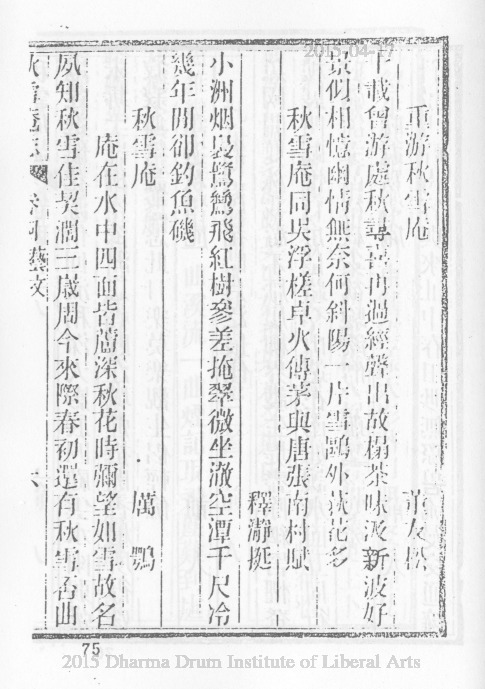 重游秋雪庵 董友松
十載曾游處秋尋喜再過經聲出故榻茶味汲新波好
景似相憶幽情無奈何斜陽一片雪鷗外荻花多
秋雪庵同吳浮槎卓火傳茅與唐張南村賦
釋瀞挺
小洲烟裊鷺鷥飛紅樹參差掩翠微坐澈空潭千尺冷
幾年閒卻釣魚磯
秋雪庵 厲鶚
庵在水中四面皆蘆深秋花時彌望如雪故名
夙知秋雪佳契濶三歲周今來際春初還有秋雪否曲
秋雪庵志 卷四藝文 六
75
2015-04-17
2015 Dharma Drum Institute of Liberal Arts